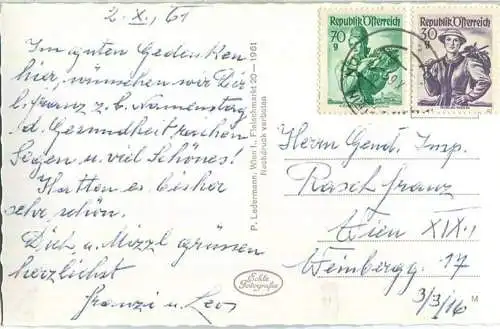 2.X.,61
Im guten Gedenken
hier, wünschen wir Dir
l. Franz z. b. Namenstag
Gesundheit reichen
Segen u. viel Schönes!
Hatten es bisher
sehr schön.
Dich u. Mizzl grüssen
herzlichst
Franzi u. Leo
P. Ledermann, Wien I., Fleischmarkt 20 — 1961
Nachdruck verboten
Echte
Fotografie
Republik Österreich
70
g
Republik Österreich
30
g
Herrn Gend. Insp.
Rasch Franz
Wien XIX.,
Weinbergg. 17
3/3/16
M